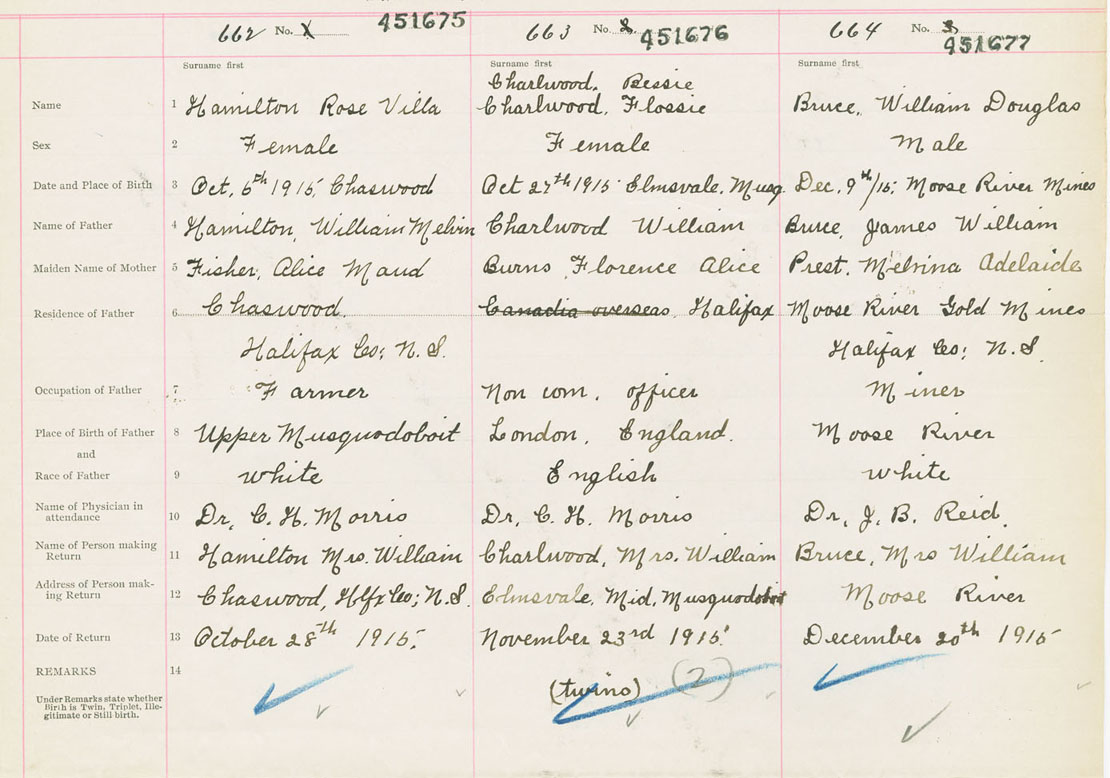 662 No. 1 451675
663 No. 2 451676
664 No. 3 451677
Surname first
Surname first
Surname first
Charlwood, Bessie
Name 1 Hamilton Rose Villa Charlwood, Flossie Bruce, William Douglas
Sex 2 Female Female Male
Date and Place of Birth 3 Oct, 6th 1915, Chaswood Oct 27th 1915 Elmsvale, Musq. Dec, 9th/15; Moose River Mines
Name of Father 4 Hamilton, William Melvin Charlwood William Bruce, James William
Maiden Name of Mother 5 Fisher, Alice Maud Burns, Florence Alice Prest, Melvina Adelaide
Residence of Father 6 Chaswood. Canadia overseas, Halifax Moose River Gold Mines
Halifax Co; N.S. Halifax Co; N.S.
Occupation of Father 7 Farmer Non com, officer Miner
Place of Birth of Father 8 Upper Musquodoboit London, England. Moose River
and
Race of Father 9 white English white
Name of Physician in
attendance 10 Dr, C. H. Morris Dr, C. H. Morris Dr, J. B. Reid.
Name of Person making
Return 11 Hamilton Mrs. William Charlwood, Mrs. William Bruce, Mrs William
Address of Person mak-
ing Return 12 Chaswood, Hlfx Co; N.S. Elmsvale, Mid, Musquodoboit Moose River
Date of Return 13 October 28th 1915. November 23rd 1915. December 20th 1915
REMARKS 14
(twins) (2)
Under Remarks state whether
Birth is Twin, Triplet, Ille-
gitimate or Still birth.